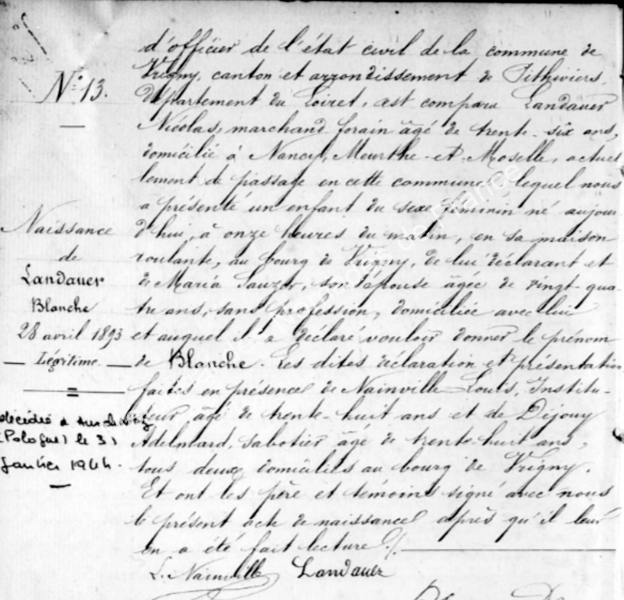 d'officier de l'état civil de la commune de
Vrigny, canton et arrondissement de Pithiviers,
Département du Loiret, est comparu Landauer
Nicolas, marchand forain âgé de trente-six ans,
domicilié à Nancy, Meurthe-et-Moselle, actuel
lement de passage en cette commune, lequel nous
a présenté un enfant du sexe féminin né aujour
d'hui, à onze heures du matin, en sa maison
roulante, au bourg de Vrigny, de lui déclarant et
de Maria Sauzer, son épouse âgée de vingt-qua
tre ans, sans profession, domiciliée avec lui
et auquel il a déclaré vouloir donner le prénom
de Blanche. Les dites déclaration et présentation
faites en présence de Nainville Louis, Institu-
teur, âgé de trente-huit ans et de Dejouy
Adelmard, sabotier âgé de trente-huit ans,
tous deux domiciliés au bourg de Vrigny.
Et ont les père et témoins signé avec nous
le présent acte de naissance après qu'il leur
en a été fait lecture.
L. Nainville Landauer
N° 13.
Naissance
de
Landauer
Blanche
28 avril 1893
Légitime.
décédée à Auschwitz
(Pologne) le 31
janvier 1944.